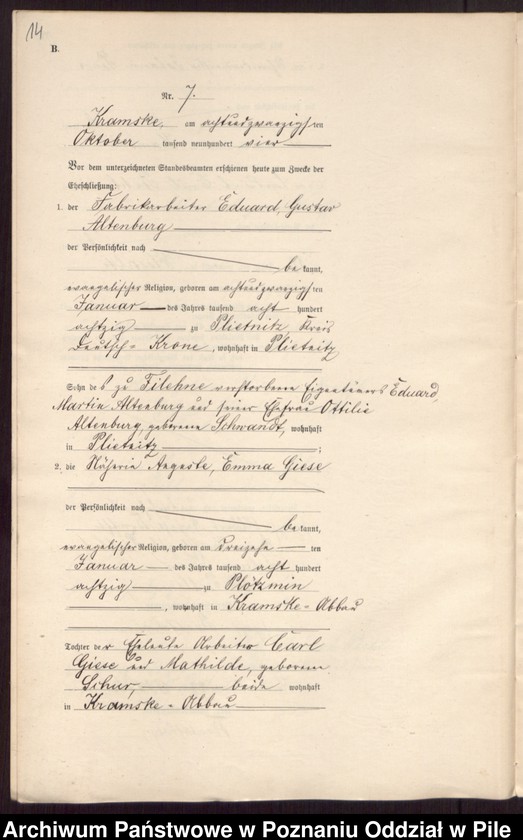 14
B.
Nr. 7.
Kramske, am achtundzwanzigsten
Oktober tausend neunhundert vier
Vor dem unterzeichneten Standesbeamten erschienen heute zum Zwecke der
Eheschließung:
1. der Fabrikarbeiter Eduard, Gustav
Altenburg
der Persönlichkeit nach
be kannt,
evangelischer Religion, geboren am achtundzwanzigsten
Januar des Jahres tausend acht hundert
achtzig zu Plietnitz, Kreis
Deutsch-Krone, wohnhaft in Plietnitz
Sohn des zu Filehne verstorbenen Eigentümers Eduard,
Martin Altenburg und seiner Ehefrau Ottilie
Altenburg, geborene Schwandt, wohnhaft
in Plietnitz ;
2. die Näherin Auguste, Emma Giese
der Persönlichkeit nach
be kannt,
evangelischer Religion, geboren am dreizehn ten
Januar des Jahres tausend acht hundert
achtzig zu Plötzmin
, wohnhaft in Kramske-Abbau
Tochter der Eheleute Arbeiter Carl
Giese und Mathilde, geborene
Schur, beide wohnhaft
in Kramske-Abbau
Archiwum Państwowe w Poznaniu Oddział w Pile